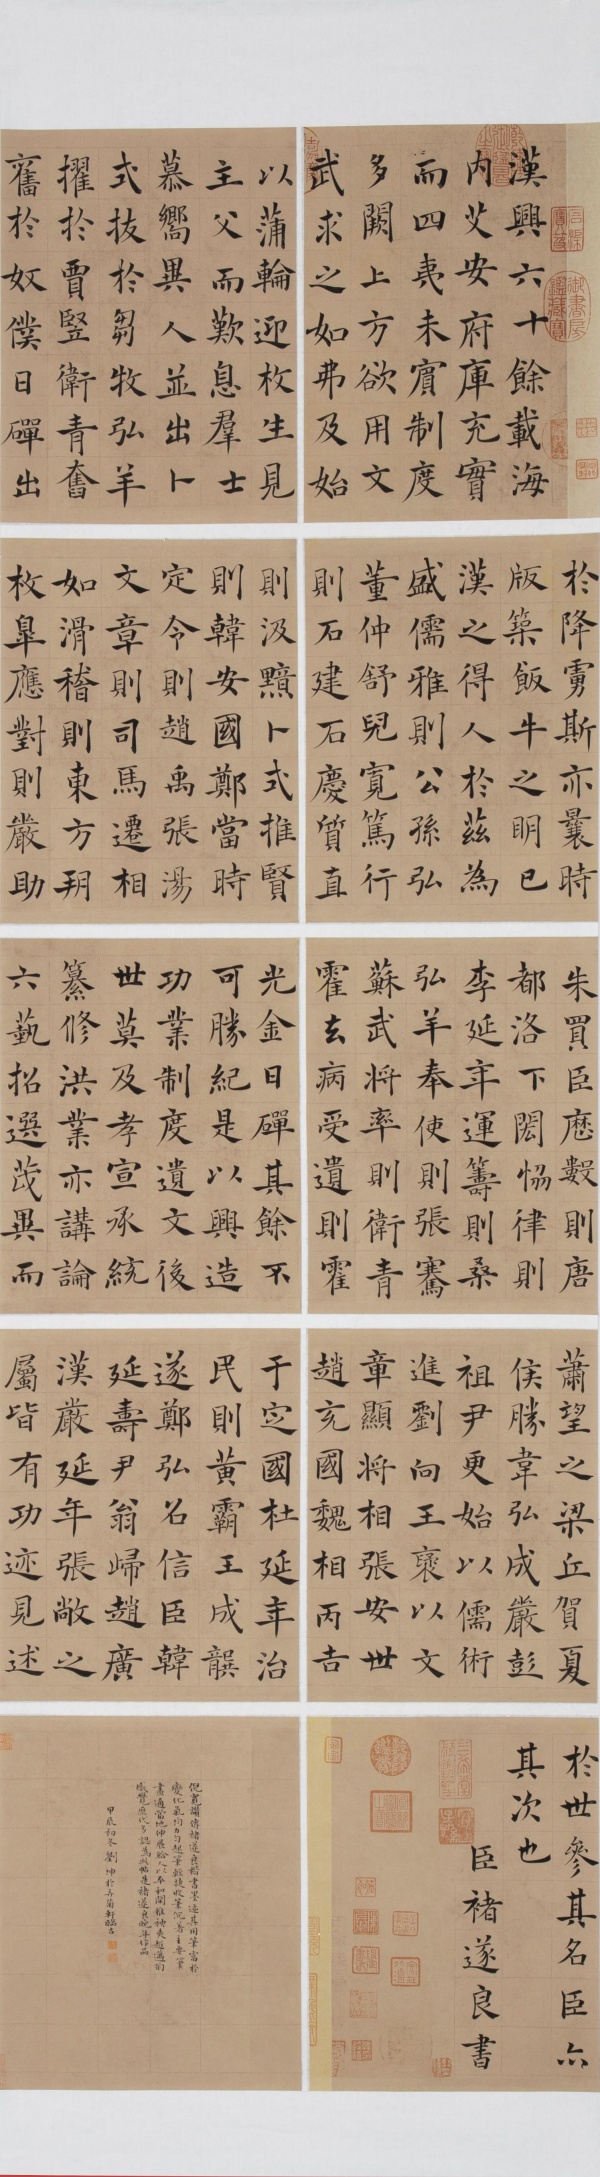 漢興六十餘載海
内艾安府庫充實
而四夷未賓制度
多闕上方欲用文
武求之如弗及始
以蒲輪迎枚生見
主父而歎息羣士
慕嚮異人並出卜
式拔於芻牧弘羊
擢於賈豎衛青奮
舊於奴僕日磾出
於降虜斯亦曩時
版築飯牛之明已
漢之得人於茲為
盛儒雅則公孫弘
董仲舒兒寬篤行
則石建石慶質直
則汲黯卜式推賢
則韓安國鄭當時
定令則趙禹張湯
文章則司馬遷相
如滑稽則東方朔
枚皐應對則嚴助
朱買臣歷數則唐
都洛下閎恊律則
李延年運籌則桑
弘羊奉使則張騫
蘇武將率則衛青
霍去病受遺則霍
光金日磾其餘不
可勝紀是以興造
功業制度遺文後
世莫及孝宣承統
纂修洪業亦講論
六藝招選茂異而
蕭望之梁丘賀夏
侯勝韋弘成嚴彭
祖尹更始以儒術
進劉向王褒以文
章顯將相張安世
趙充國魏相丙吉
于定國杜延年治
民則黃霸王成龔
遂鄭弘召信臣韓
延壽尹翁歸趙廣
漢嚴延年張敞之
屬皆有功迹見述
於世參其名臣亦
其次也
臣褚遂良書
倪寬讚傳褚遂良楷書墨迹其用筆富於